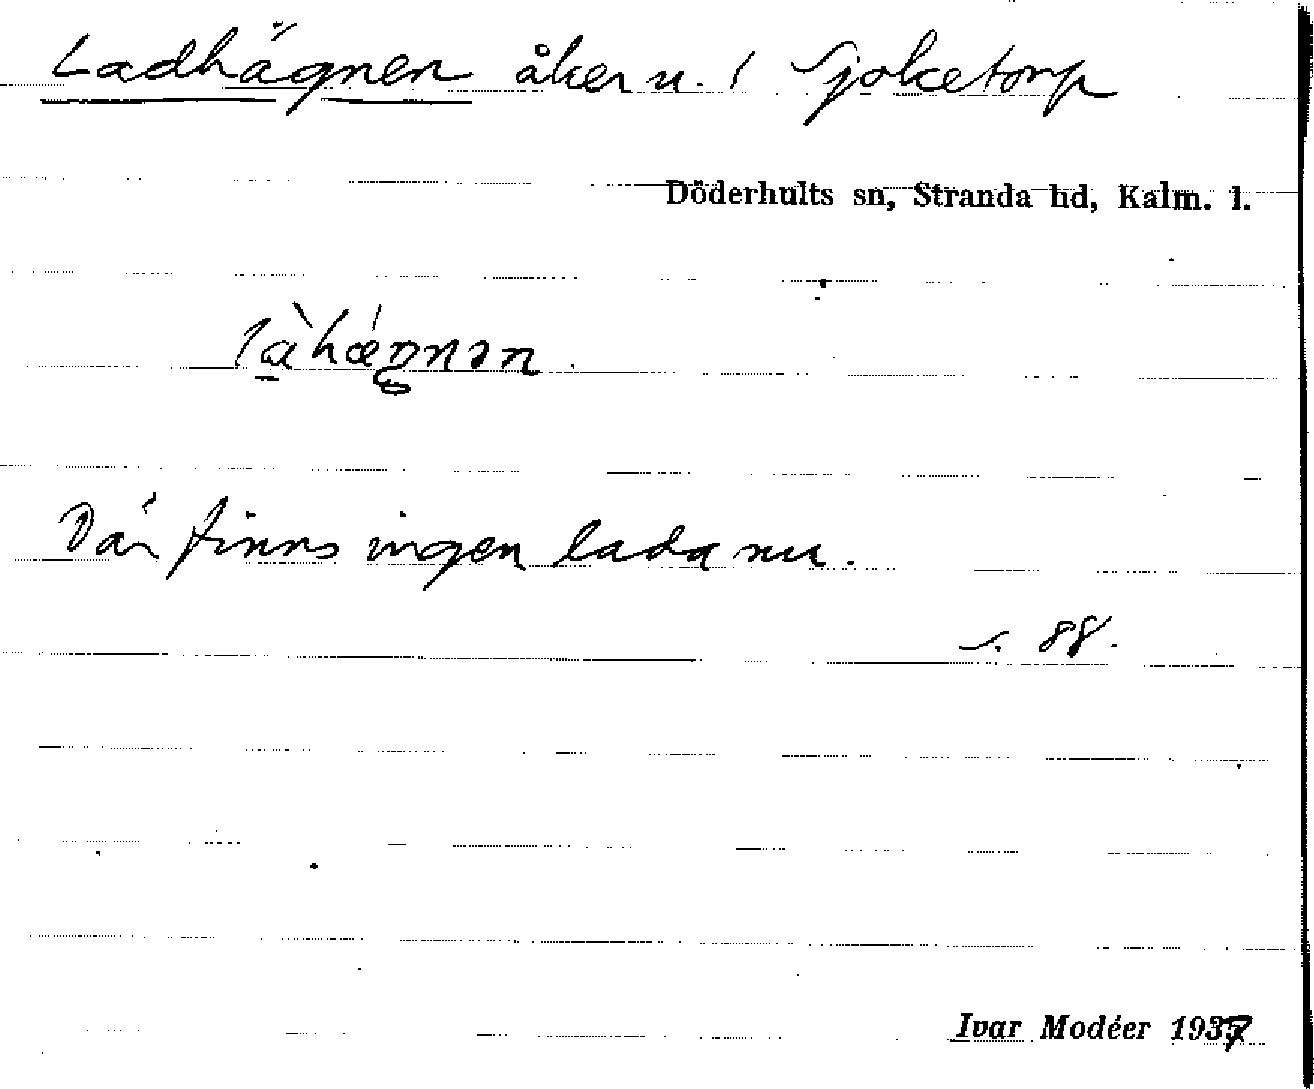 Ladhägnen åker u. 1 Sjoketorp
Döderhults sn, Stranda hd, Kalm. l.
Där finns ingen lada nu.
s. 88.
Ivar Modéer 1937